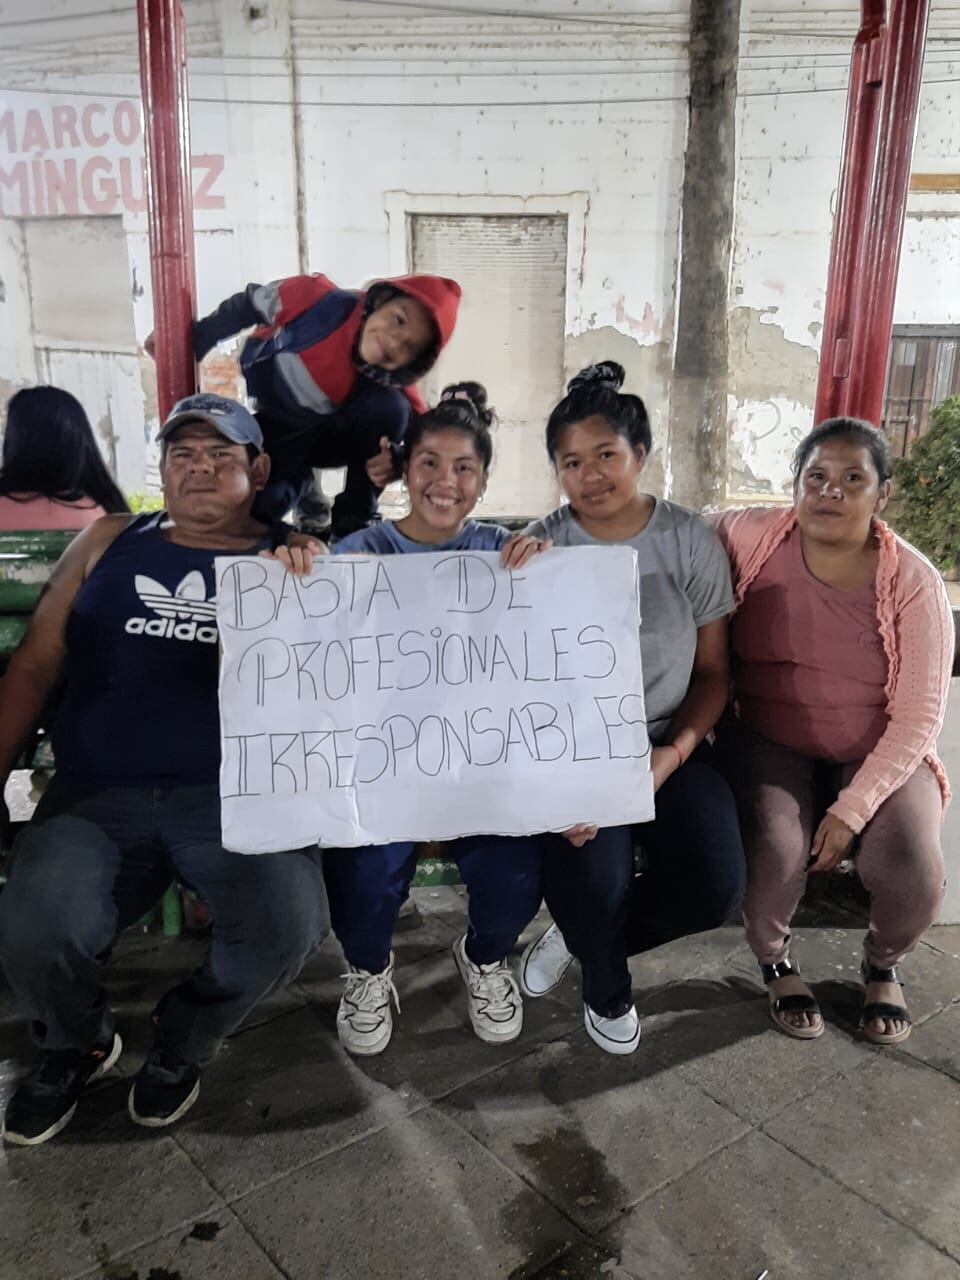 MARCOS
MÍNGUEZ
adidas
BASTA DE
PROFESIONALES
IRRESPONSABLES